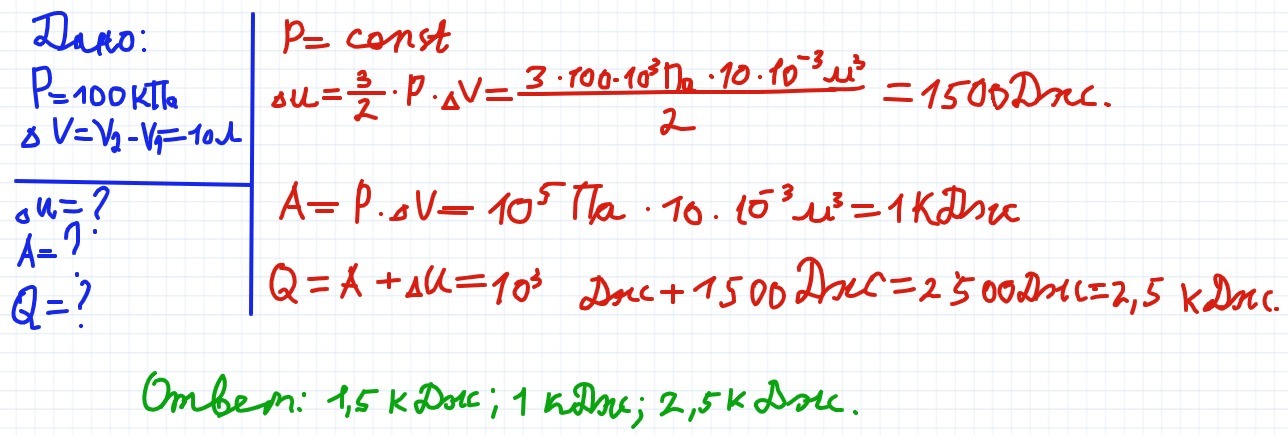 Дано:
P=100кПа
ΔV=V₂-V₁=10л
Δu=?
A=?
Q=?
P= const
Δu=3/2·P·ΔV=3·100·10³Па·10·10⁻³м³/2=1500Дж.
A=P·ΔV=10⁵Па·10·10⁻³м³=1кДж
Q=A+ΔU=10³ Дж+1500Дж=2500Дж=2,5 кДж.
Ответ: 1,5 кДж; 1 кДж; 2,5к Дж.